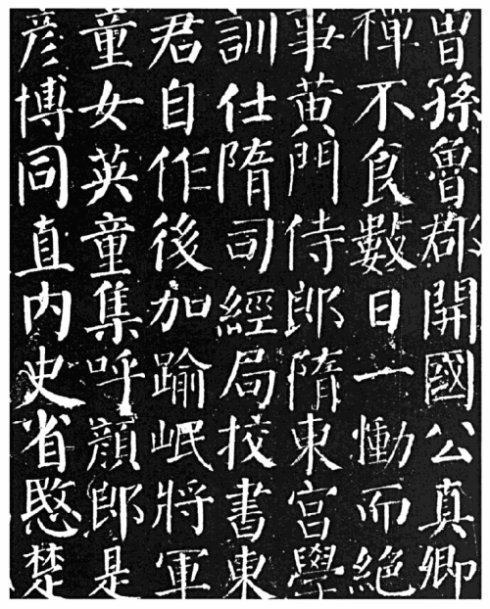 曾孫魯郡開國公真卿
禪不食數日一慟而絶
事黄門侍郎隋東宫學
訓仕隋司經局挍書東
君自作後加踰岷將軍
童女英童集呼顔郎是
彦博同直内史省愍楚